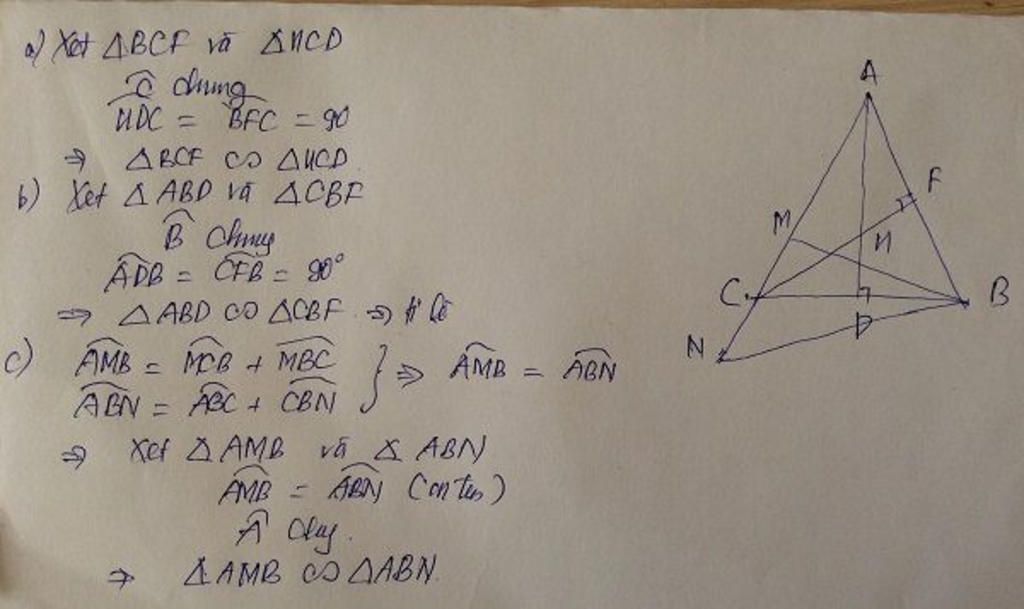 a) Xét △BCF và △HCD
Ĉ chung
HDC = BFC = 90
⇒ △BCF ∽ △HCD.
b) Xét △ABD và △CBF
B̂ chung
ADB = CFB = 90°
⇒ △ABD ∽ △CBF ⇒
c) AMB = MCB + MBC
ABN = ABC + CBN } ⇒ AMB = ABN
⇒ Xét △AMB và △ABN
AMB = ABN (cmtrên)
Â chung.
⇒ △AMB ∽ △ABN
A
F
M
H
C
B
D
N